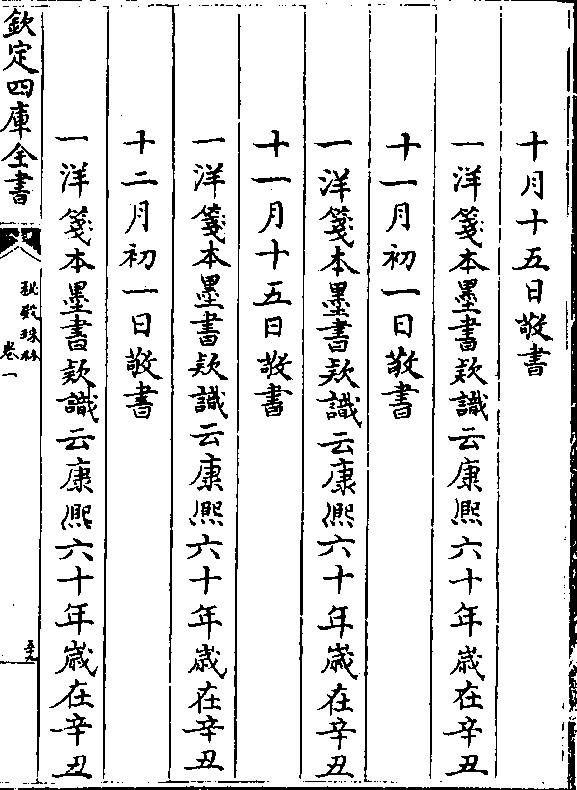 十月十五日敬書
一洋箋本墨書欵識云康熙六十年歳在辛丑
十一月初一日敬書
一洋箋本墨書欵識云康熙六十年歳在辛丑
十一月十五日敬書
一洋箋本墨書欵識云康熙六十年歳在辛丑
十二月初一日敬書
一洋箋本墨書欵識云康熙六十年歳在辛丑
欽定四庫全書
秘殿珠林
卷一